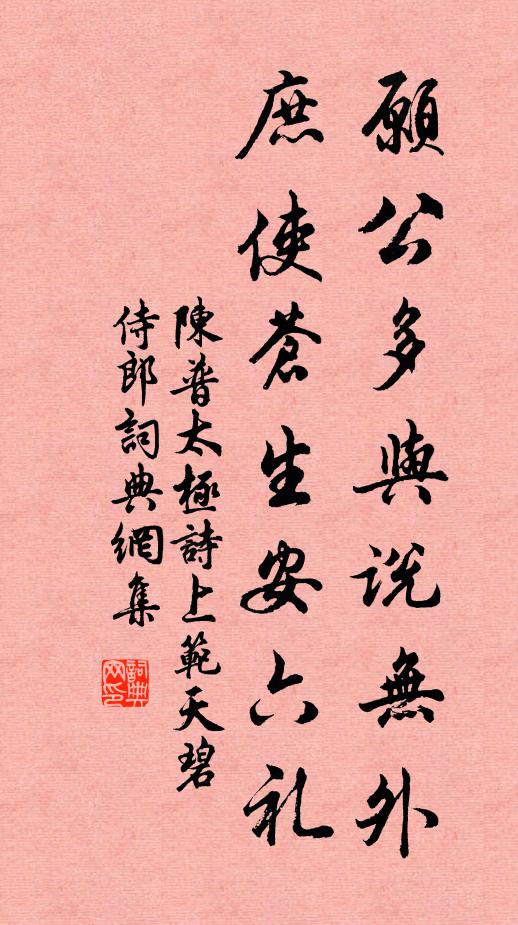 願公多與說無外
庶使蒼生安六礼
陳普太極詩上範天碧
侍郎詞典網集
詞典網印